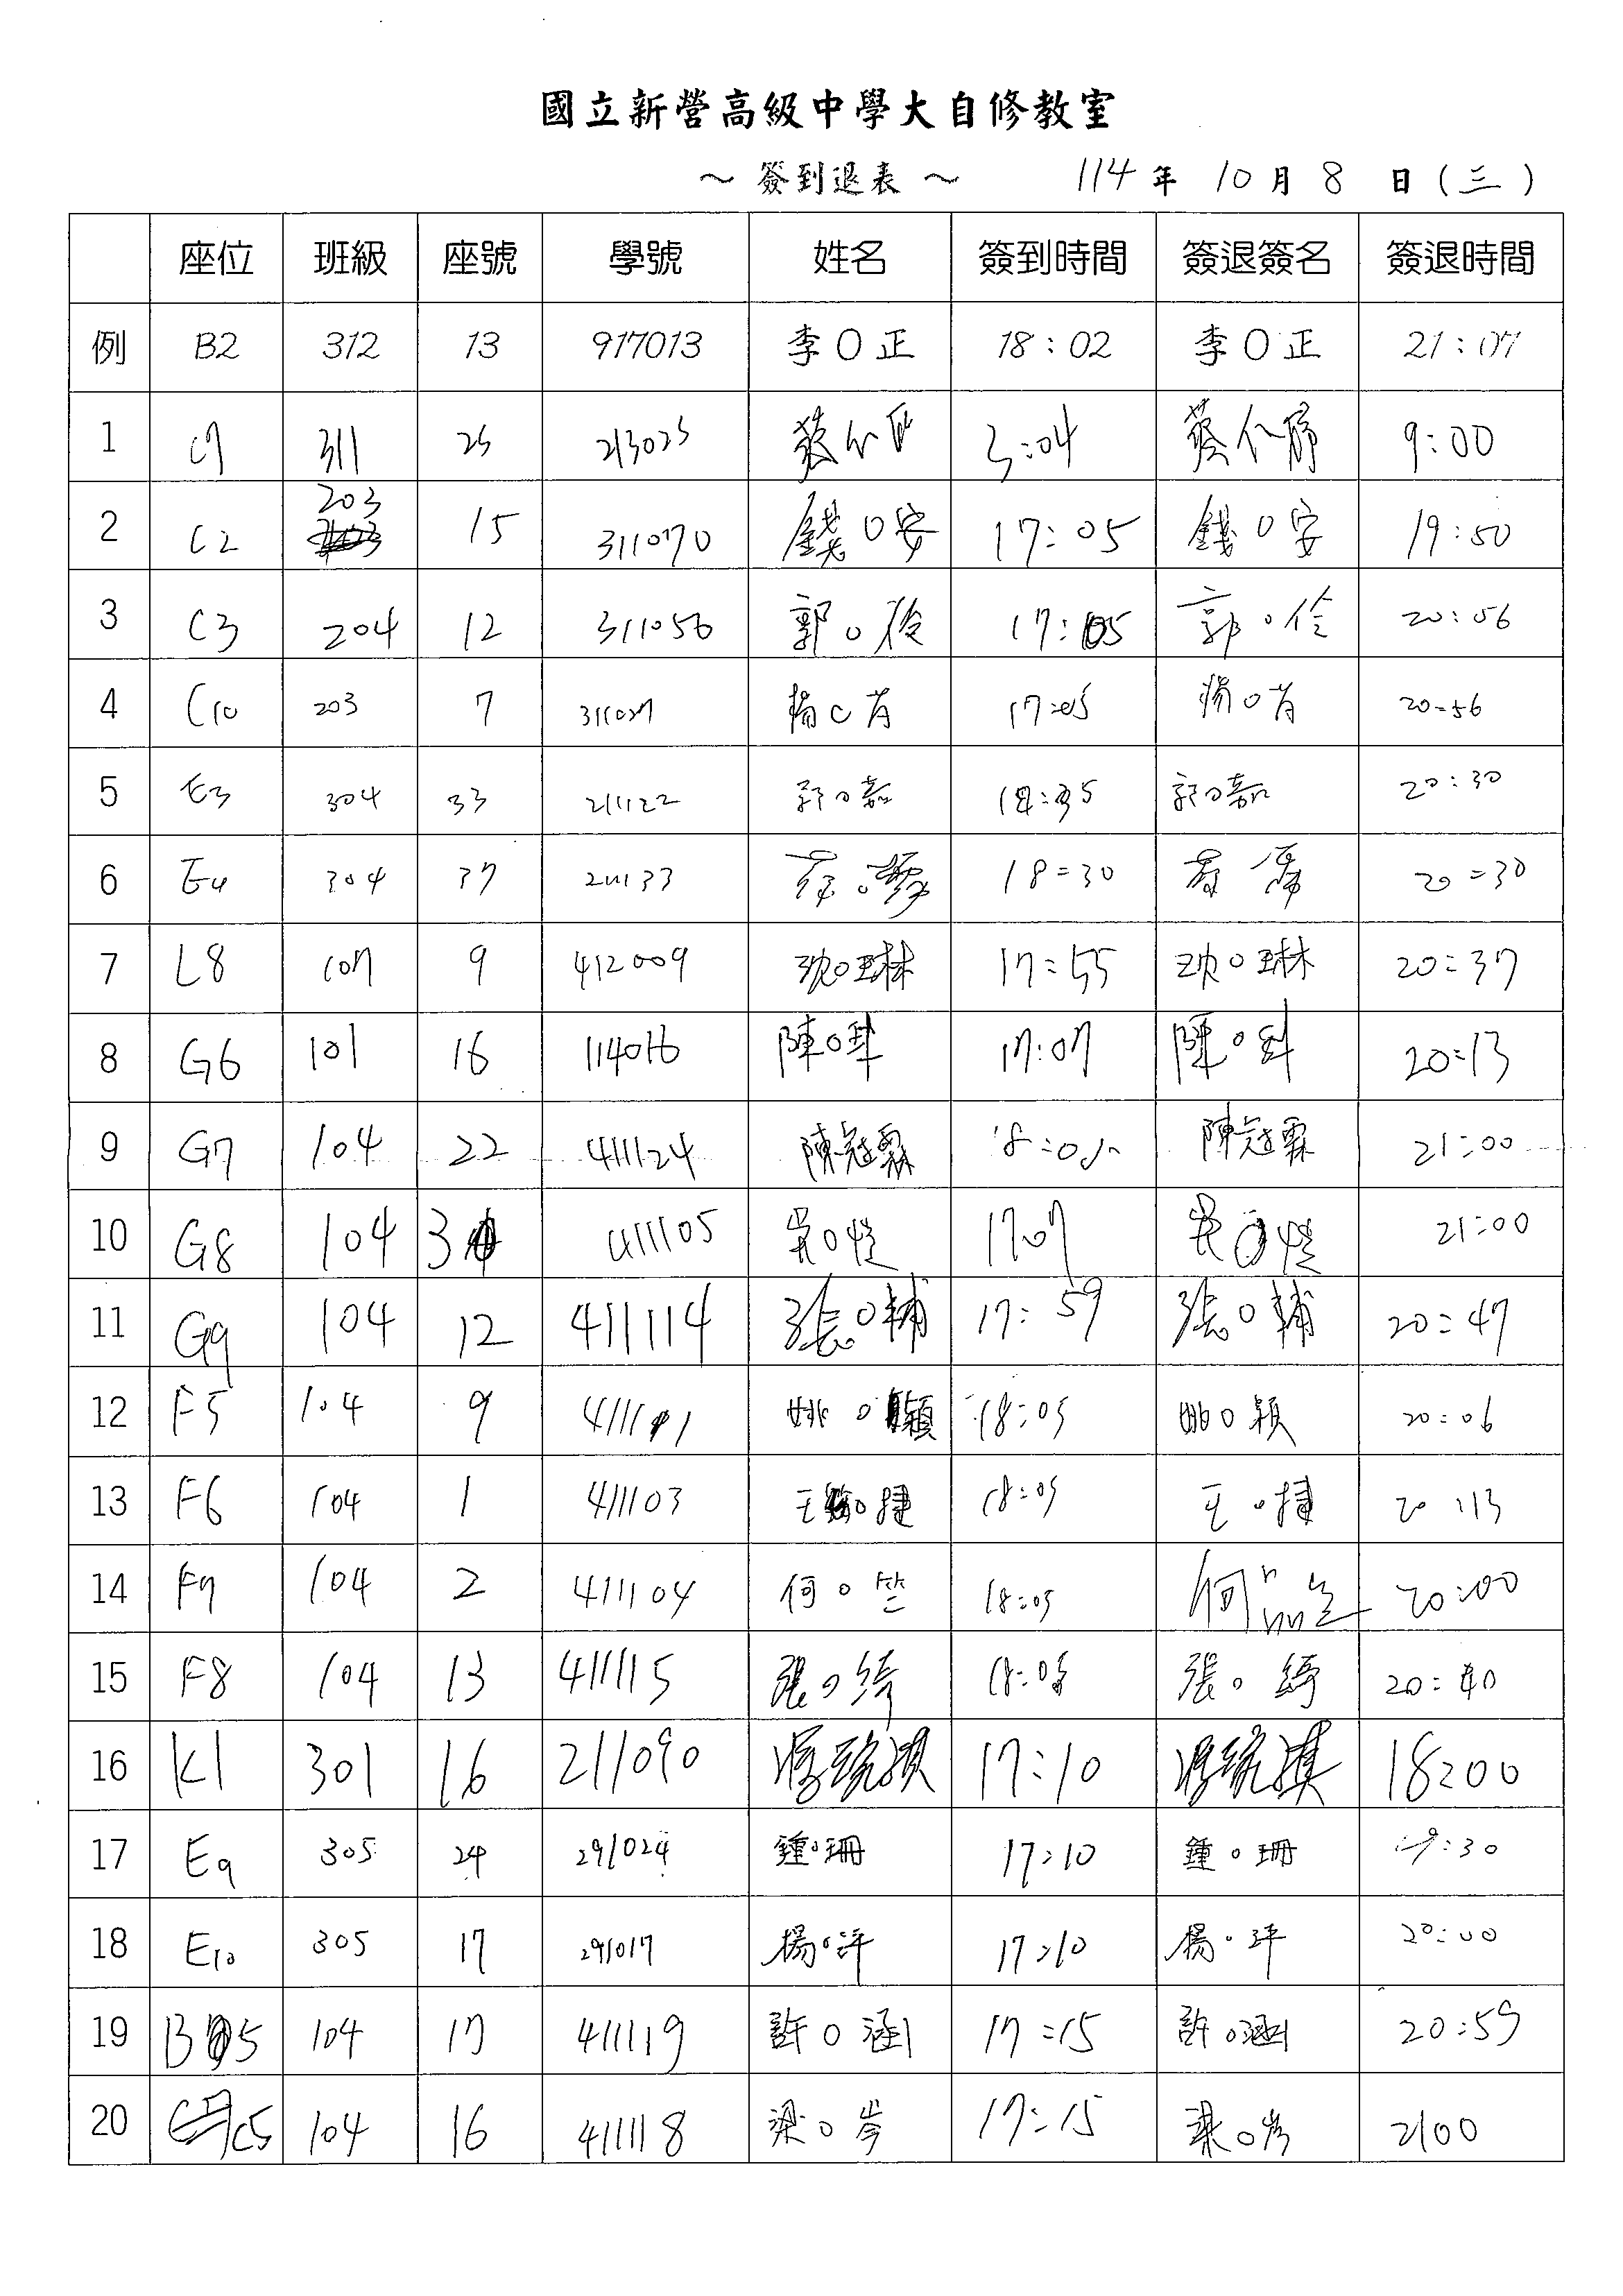 國立新營高級中學大自修教室
～ 簽到退表 ～ 114 年 10 月 8 日 ( 三 )
座位 班級 座號 學號 姓名 簽到時間 簽退簽名 簽退時間
例 B2 312 13 917013 李O正 18:02 李O正 21:07
1 C7 311 25 213025 蔡 3:04 蔡 9:00
2 C2 203 15 311070 錢O安 17:05 錢O安 19:50
3 C3 204 12 311056 郭O 17:05 郭O伶 20:56
4 C10 203 7 311027 楊O 17:05 楊O 20:56
5 E3 304 33 211122 郭O嘉 20:30
6 E4 304 37 211133 18:30 20:30
7 L8 107 9 412009 沈O琳 17:55 沈O琳 20:37
8 G6 101 16 114016 陳O 17:07 陳O 20:13
9 G7 104 22 411124 陳冠霖 陳冠霖 21:00
10 G8 104 3 411105 吳O 17:07 吳O 21:00
11 G9 104 12 411114 張O輔 17:59 張O輔 20:47
12 F5 104 9 姚O穎 18:05 姚O穎 20:06
13 F6 104 1 411103 王O捷 18:05 王O捷 20:13
14 F7 104 2 411104 何O竺 18:05 何品竺 20:00
15 F8 104 13 411115 張O綺 18:05 張O綺 20:40
16 K1 301 16 211090 17:10 18:00
17 E9 305 24 291024 鍾O珊 17:10 鍾O珊 19:30
18 E10 305 17 291017 楊O 17:10 楊O 20:00
19 B5 104 17 411119 許O涵 17:15 許O涵 20:59
20 C5 104 16 411118 梁O岑 17:15 梁O岑 2100